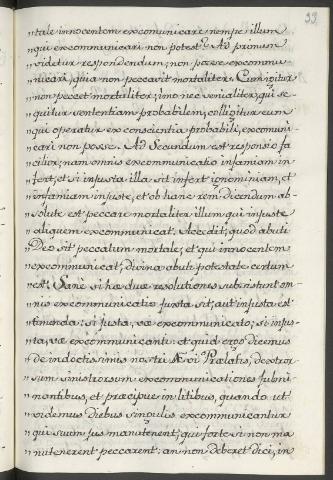 93
"tale innocentem excomunicari nempe illum
"qui excommunicari non potest. Ad primum
"videtur respondendum, non posse excommu
"nicari, quia non peccavit mortaliter. Cum igitur
"non peccet mortaliter, imo nec venialiter, qui se
"quitur sententiam probabilem, colligitur eum
"qui operatur ex conscientia probabili, excomuni
"cari non posse. Ad Secundum est responsio fa
"cilior, nam omnis excommunicatio infamiam in
"fert, et si injusta illa sit infert ignominiam, et
"infamiam injuste, et ob hanc rem dicendum ab
"solute est peccare mortaliter illum qui injuste
"aliquem excommunicat. Accedit, quod abuti
"Deo sit peccatum mortale, et qui innocentem
"excommunicat, divina abuti potestate certum
"est. Sane si hae duae resolutiones subsistunt om
"nis excommunicatio justa sit, aut injusta est
"timenda: si justa, vae excommunicato, si injus
"ta, vae excommunicanti et quid ergo dicemus
"de indoctisimis nostri Praelatis, dextror
"sum sinistrorsum excommunicationes fulmi
"nantibus, et praecipue in litibus, quando ut
"videmus diebus singulis excommunicantur
"qui suum jus manutenent, qui forte si non ma
"nutenerent peccarent: an non deberet dici, in